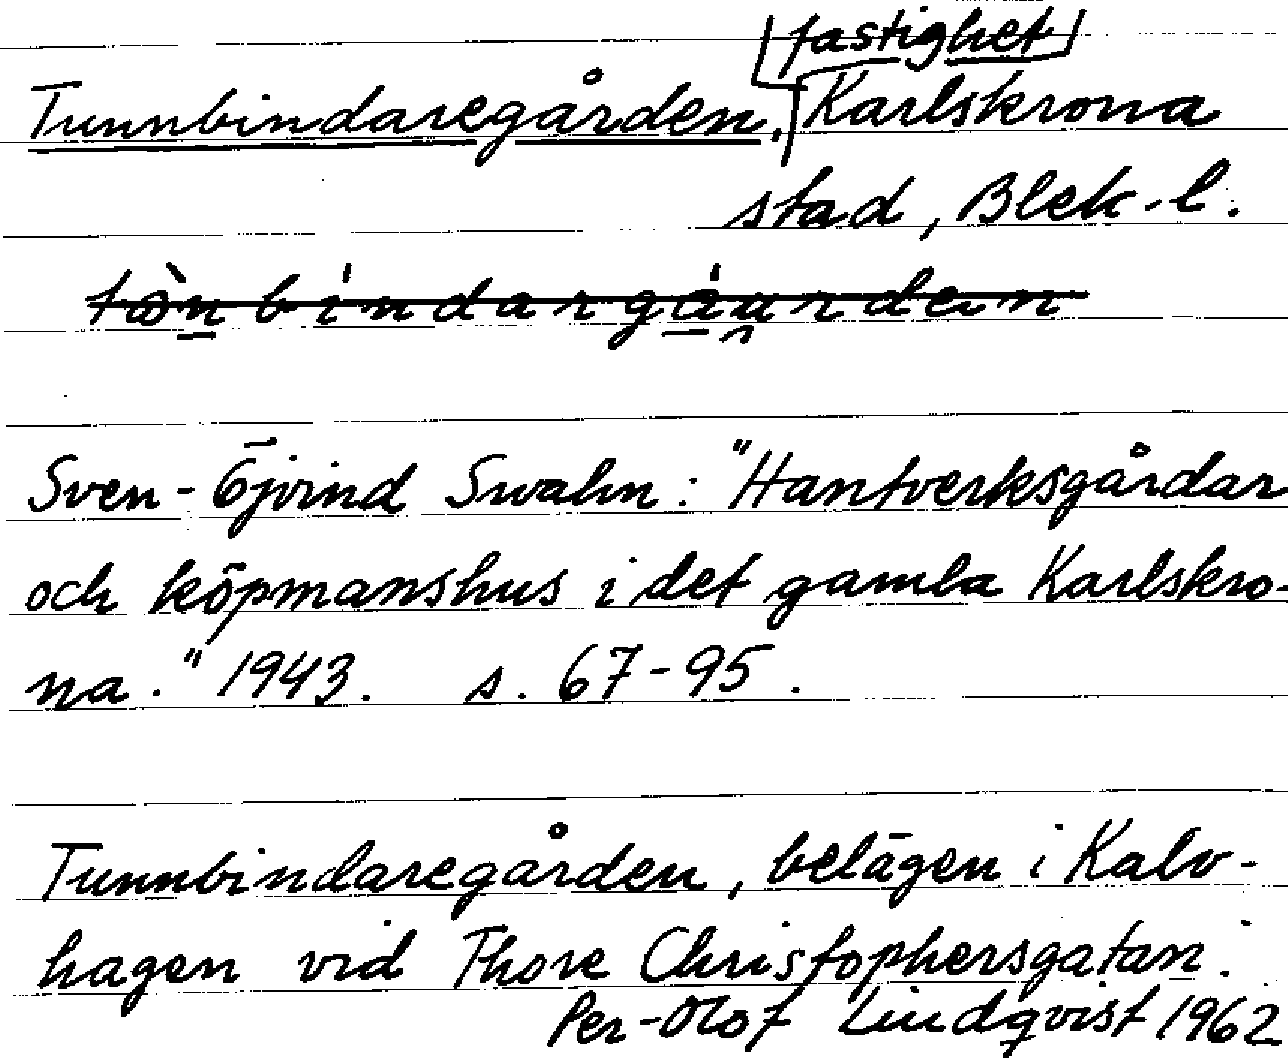 fastighet
Tunnbindaregården, Karlskrona
stad, Blek. l.
Sven-Öjvind Swahn: "Hantverksgårdar
och köpmanshus i det gamla Karlskro-
na." 1943. s. 67-95.
Tunnbindaregården, belägen i Kalv-
hagen vid Thore Christophersgatan.
Per-Olof Lindqvist 1962